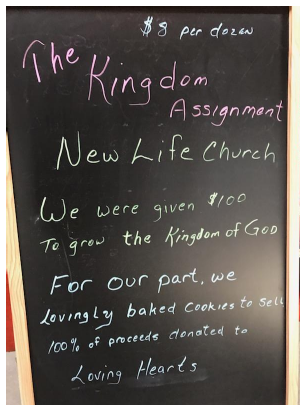 $8 per dozen
The
Kingdom
Assignment
New Life Church
We were given $100
To grow the Kingdom of God
For our part, we
lovingly baked Cookies to Sell
100% of proceeds donated to
Loving Hearts